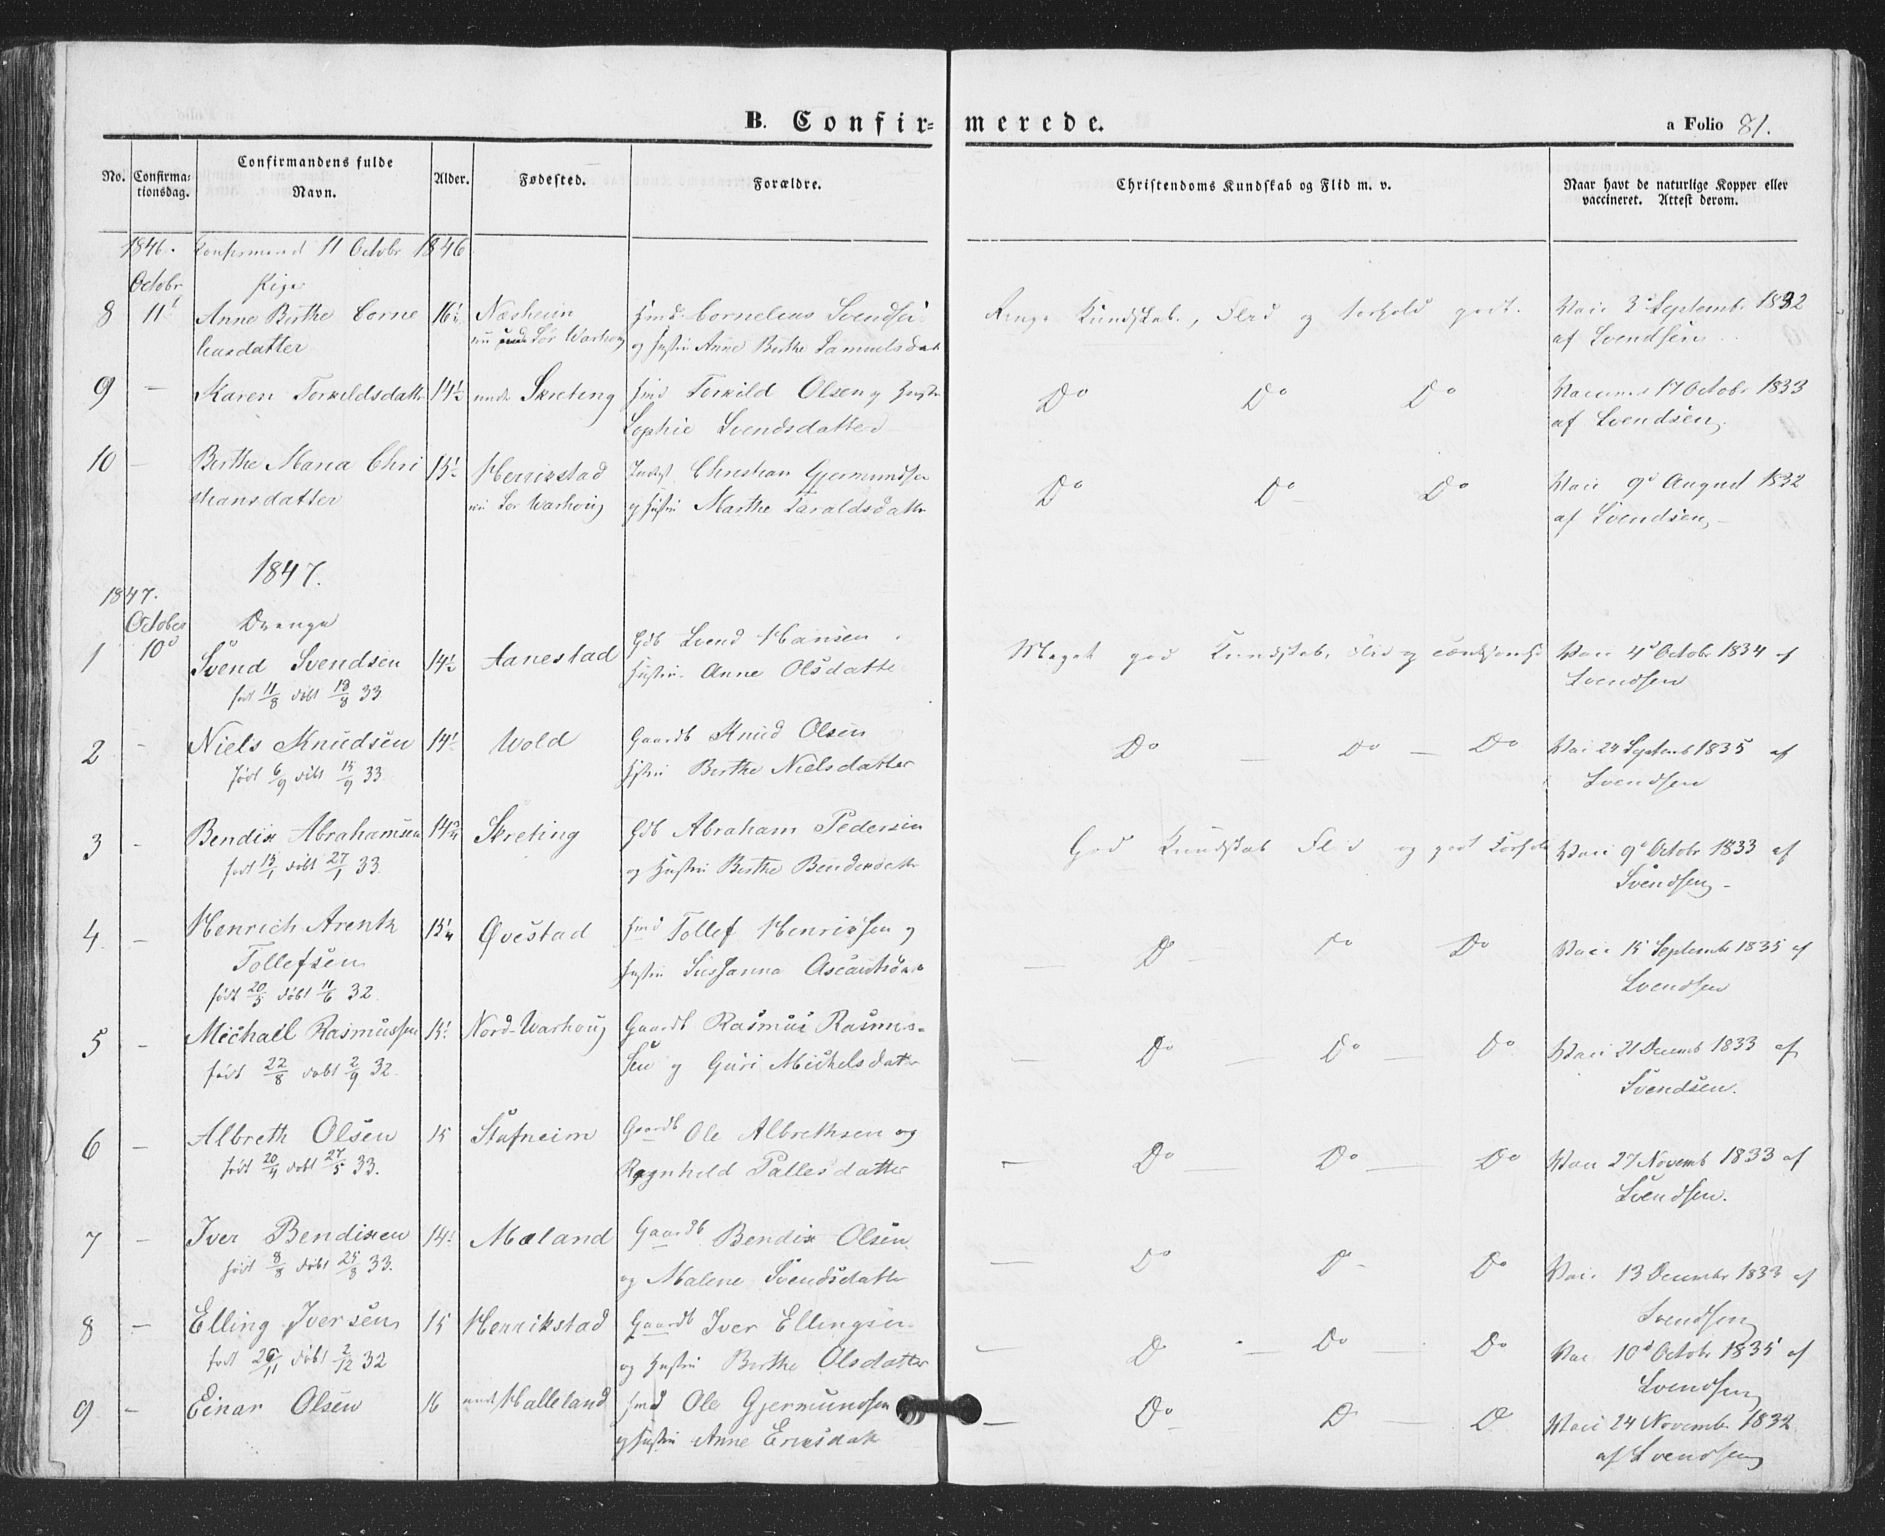 B. Confir=merede.
a Folio 81.
No.
Confirma=
tionsdag.
Confirmandens fulde
Navn.
Alder.
Fødested.
Forældre.
Christendoms Kundskab og Flid m. v.
Naar havt de naturlige Kopper eller
vaccineret. Attest derom.
1846. 11 Octobr 1846
Octobr
8 11' Anne Birthe Corne 16½ Næsheim Cornelius Svendsen Kundskab, Flid og Forhold godt. 3d Septembr 1832
liusdatter Sør Warhoug og Anne Birthe Samuelsdatt af Svendsen
9 — Karen Torkildsdatt 14½ Skreting Torkild Olsen og Do Do Do 17 Octobr 1833
Sophie Svendsdatter af Svendsen
10 — Birthe Maria Chri 15½ Henrikstad Christian Gjermundsen Do Do Do 9d August 1832
stiansdatter Sør Warhoug og Marthe Taraldsdatt af Svendsen
1847.
1847.
October Drenge
1 10d Svend Svendsen 14½ Aanestad Gdb Svend Hansen Meget god Kundskab, Flid og Vaci 4d Octobr 1834 af
født 11/8 døbt 18/8 33 Hustru Anne Olsdatter Svendsen
2 - Niels Knudsen 14½ Wold Gaardb Knud Olsen Do — Do — Do Vaci 24 Septemb 1835 af
født 6/9 døbt 15/9 33 Hustru Birthe Nielsdatter Svendsen
3 - Bendix Abrahamsen Skreting Gdb Abraham Pedersen God Kundskab Flid og godt Forhold Vaci 9d Octobr 1833 af
født 13/1 døbt 27/1 33 og Hustru Birthe Svendsen
4 — Henrich Arentz 15¼ Øvestad Tollef Henrichsen og — Do Do Do Vaci 15 Septembr 1835 af
Tollefsen Hustru Susanna Svendsen
født 20/5 døbt 11/6 32
5 - Michael Rasmussen Nord-Warhoug Gaardb Rasmus Rasmus- — Do — Do — Do Vaci 21 Decemb 1833 af
født 22/8 døbt 2/9 32 sen og Guri Michelsdatter Svendsen.
6 - Albreth Olsen 15 Stufneim Gaardb Ole Albrethsen og — Do — Do — Do Vaci 27 Novemb 1833 af
født 20/4 døbt 27/5 33. Ragnhild Pallesdatter Svendsen.
7 — Iver Bendixen 14½ Mæland Gaardb Bendix Olsen — Do Do Do Vaci 13 Decembr 1833 af
født 8/8 døbt 25/8 33. og Malene Svendsdatter Svendsen
8 — Elling Iversen 15 Henrikstad Gaardb Iver Ellingsen — Do Do — Do Vac 10d Octobr 1835 af
født 26/11 døbt 2/12 32 og Hustru Birthe Olsdatter Svendsen
9 — Einar Olsen 16 Malleland Ole Gjermundsen — Do — Do — Do Vaci 24 Novembr 1832
og Hustru Anne Ericsdatt af Svendsen